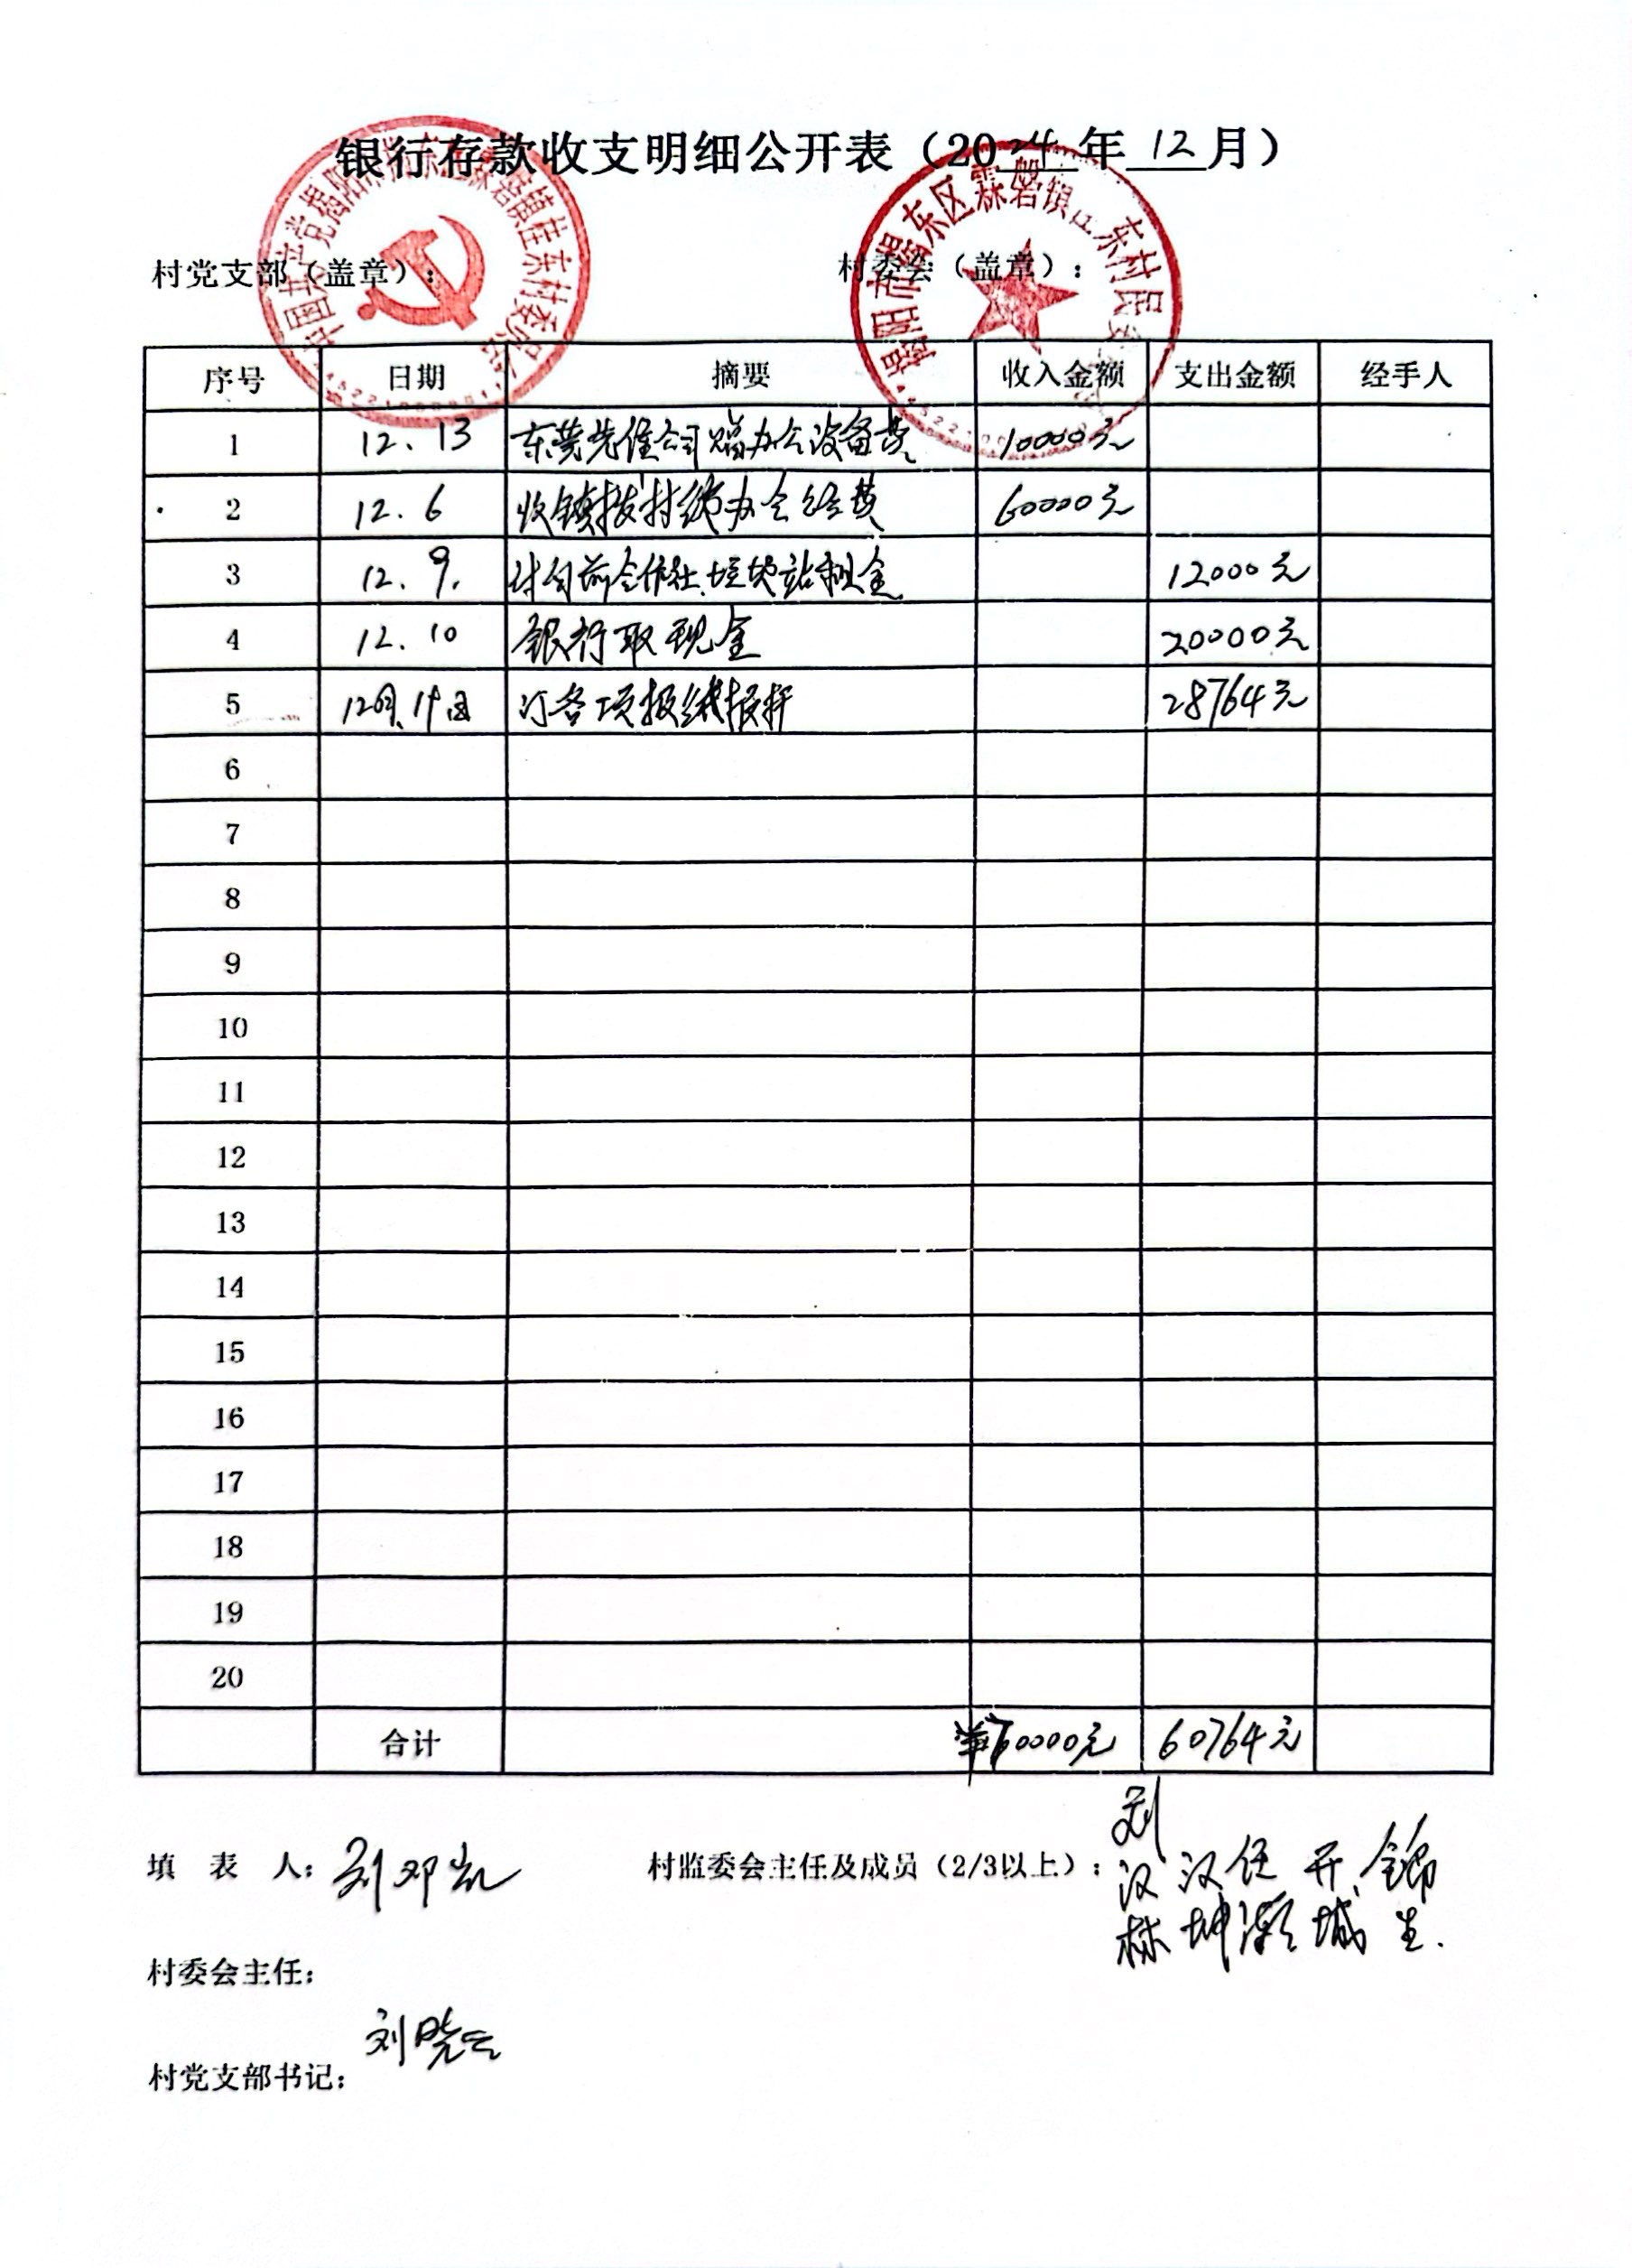 银行存款收支明细公开表（2024年12月）
村党支部（盖章）： 村委会（盖章）：
序号 日期 摘要 收入金额 支出金额 经手人
1 12.13 东莞先佳公司赠办公设备费 10000元
2 12.6 收镇拨村级办公经费 60000元
3 12.9. 合作社垃圾站租金 12000元
4 12.10 銀行取现金 20000元
5 12月19日 订各项报纸报杆 28764元
6
7
8
9
10
11
12
13
14
15
16
17
18
19
20
合计 70000元 60764元
填表人：刘邓凯 村监委会主任及成员（2/3以上）：刘汉林 汉坤 任灏 开城 錦生.
村委会主任：
刘晓云
村党支部书记：